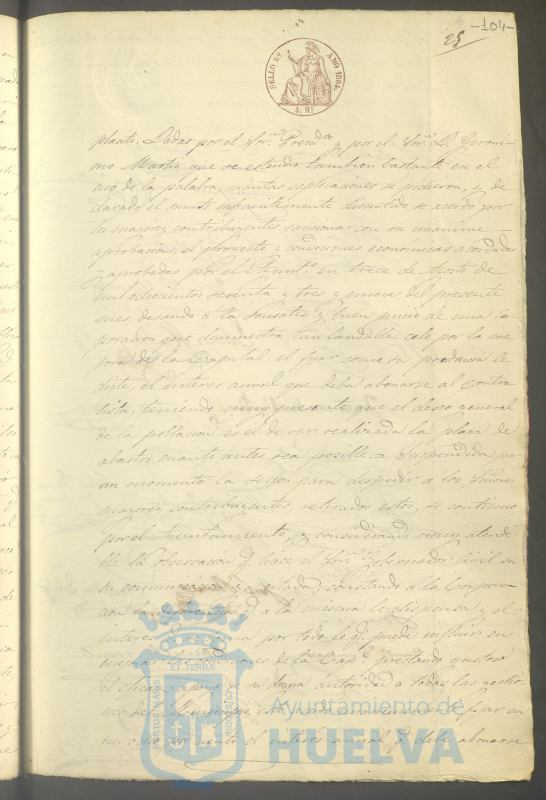 -104-
25
SELLO 8º AÑO 1864.
4. Rˢ
planto. Dadas por el Sor. Presidte y por el Sor. D. Geroni-
mo Martin que se estendio tambien bastante en el
uso de la palabra, cuantas esplicaciones se pidieron, y de
clarado el punto suficientemente discutido se acordó por
los mayores contribuyentes sancionar con su unanime
aprobacion, el proyecto y condiciones económicas acordadas
y aprobadas por el Ayuntº. en trece de Agosto de
mil ochocientos sesenta y tres y nueve del presente
mes dejando a la sensatez y buen juicio de una Cor
poracion que demuestra tan laudable celo por la me
jora de la Capital el fijar como su prudencia le
dicte el interes anual que deba abonarse al contra
tista, teniendo muy presente que el deseo general
de la poblacion es el de ver realizada la plaza de
abastos cuanto antes sea posible. = Suspendida por
un momento la sesion para despedir a los Señores
mayores contribuyentes, retirados estos, se continuó
por el Ayuntamiento, y considerando muy atendi
ble la observacion q. hace el Sor. Gobernador Civil en
su comunicacion citada, constando a la Corpora-
cion la q. a la misma le dispensa y el
interes por todo lo q. puede influir en
mejorar las condiciones de la Capl. prestando gustoso
el eficaz apoyo de su digna autoridad a todas las gestio
nes
en el interes anual q. debe abonarse
ET TERRA
PORTUS MARIS
CUSTODIA
Ayuntamiento de
HUELVA